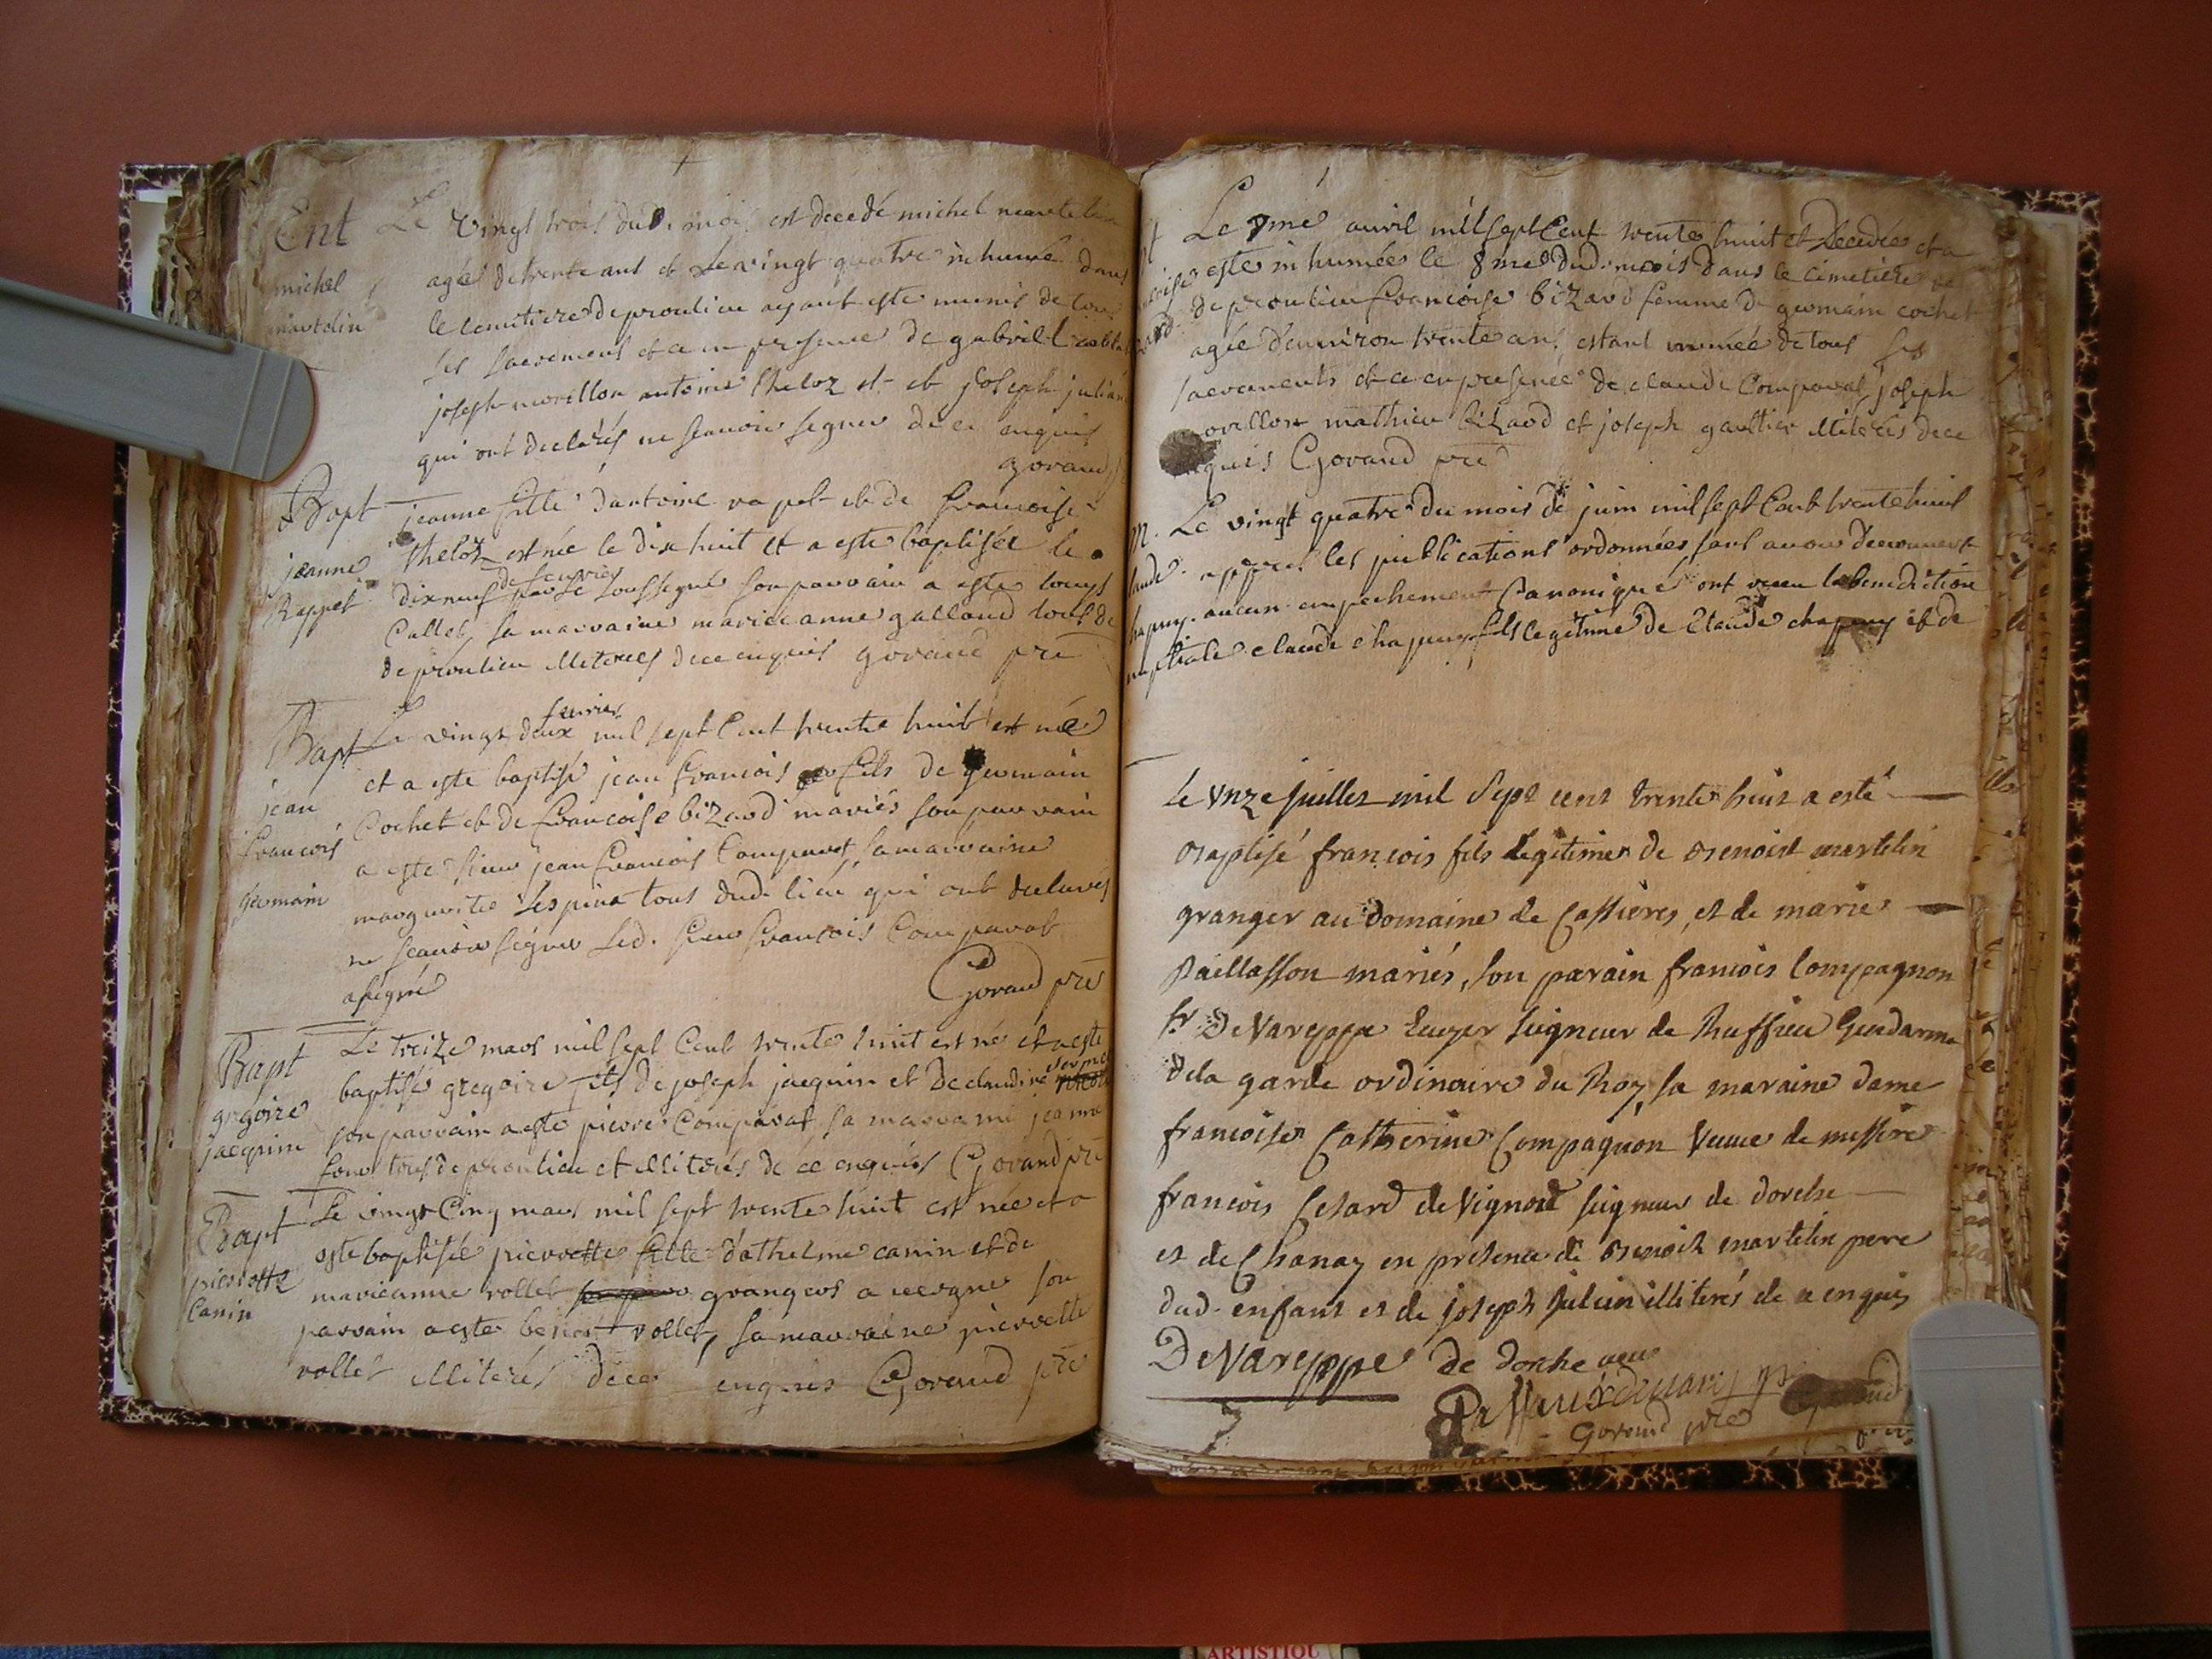 Ent
michel
martelin
Le vingt trois dud. mois est decedé michel martelin
agée de trente ans et le vingt quatre inhumé dans
le cemitiere de proulieu ayant este munis de tous
ses sacremens et ce en presence de gabriel
joseph morellon antoine theloz et joseph julian
qui ont declarés ne scavoir signer de ce enquis
Goraud
Bapt
jeanne
Rappet
jeanne fille d'antoine rapet et de francoise
theloz est née le dix huit et a este baptisée le
dixneuf de fevrier par le soussigné son parrain a este louys
Cullet, sa marraine marie anne galland tous de
de proulieu illiterés de ce enquis Goraud pre
Bapt
jean
francois
germain
Le vingt deux fevrier mil sept Cent trente huit est née
et a este baptisé jean francois fils de germain
Cochet et de francoise bizard mariés son parrain
a este sieur jean francois Comparat, sa marraine
marguerite Lespina tous dud. lieu qui ont declarés
ne scavoir signer led. sieur francois Comparat
a signé
Goraud pre
Bapt
gregoire
jacquin
Le treize mars mil sept Cent trente huit est né et a este
baptisé gregoire fils de joseph jacquin et de claudine
son parrain a este pierre Comparat sa marraine jeanne
tous de proulieu et illiterés de ce enquis Goraud pre
Bapt
pierrette
Canin
Le vingt Cinq mars mil sept trente huit est née et a
este baptisée pierrette fille d'athelme canin et de
marieanne rollet grangers a son
parrain a este benoit rollet, sa marraine pierrette
rollet illiterés de ce enquis Goraud pre
Le 7me avril mil sept Cent trente huit est decedée et a
este inhumée le 8me dud. mois dans le cimetiere
de proulieu francoise bizard femme de germain cochet
agée d'environ trente ans estant munée de tous ses
sacraments et ce en presence de claude Comparat, joseph
orellon mathieu bizard et joseph gaultier illiterés de ce
quis Goraud pre
m. Le vingt quatre du mois de juin mil sept Cent trente huit
appres les publications ordonnées, sans avoir decouvert
aucun empechement Canonique ont receu la benediction
nuptiale claude chapuy fils legitime de Claude chapuy et de
Le Vnze Juillet mil Sept cent trente huit a esté
Baptisé françois fils legitime de Benoist martelin
granger au Domaine de Cassieres, et de marie
Paillasson mariés, son parain francois Compagnon
Sr DeVareyppe Ecuyer Seigneur de Ruffieu Gendarme
dela garde ordinaire du Roy, sa maraine dame
francoise Catherine Compagnon Veuve de messire
francois Cesard de Vignod seigneur de dorche
et de Chanay en presence de Benoist martelin pere
dud. enfant et de joseph Julien illiterés de ce enquis
DeVareyppe de dorche
Goraud pre
ARTISTIQU